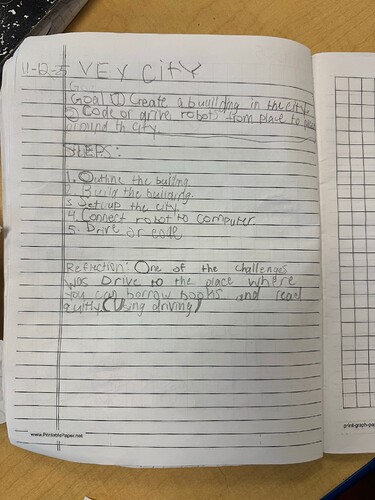 11-12-25 VEX CITY
G
Goal ① Create a buuilding in the city.
② Code or drive robots from place to place
around th city.
STEPS:
1. Outline the builing
2. Build the building.
3. Set up the city
4. Connect robot to computer
5. Drive or code
Reflection: One of the challenges
was Drive to the place where
you can borrow books and read
(Using driving)
www.PrintablePaper.net
print-graph-pa